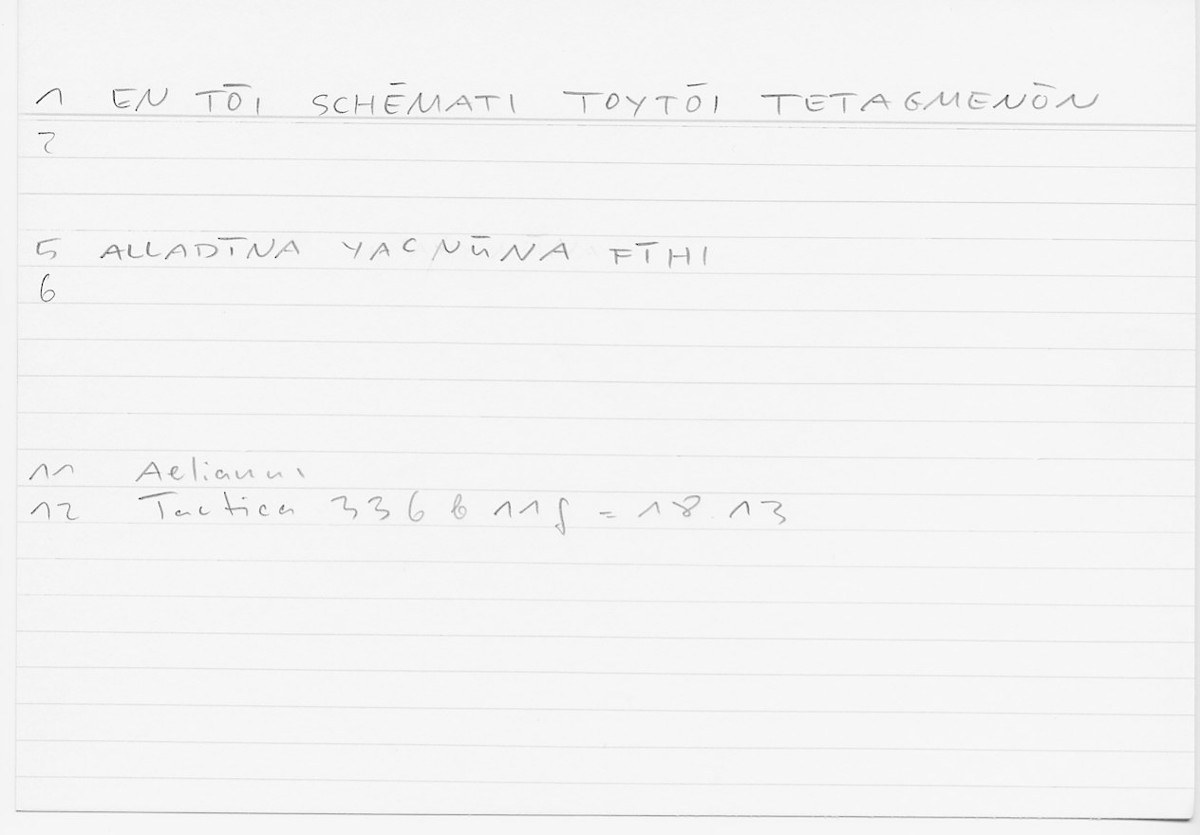 1 EN TŌI SCHĒMATI TOYTŌI TETAGMENŌN
2
5 ALLADĪNA YACNŪNA FĪHI
6
11 Aelianus
12 Tactica 336 b 11f = 18 13